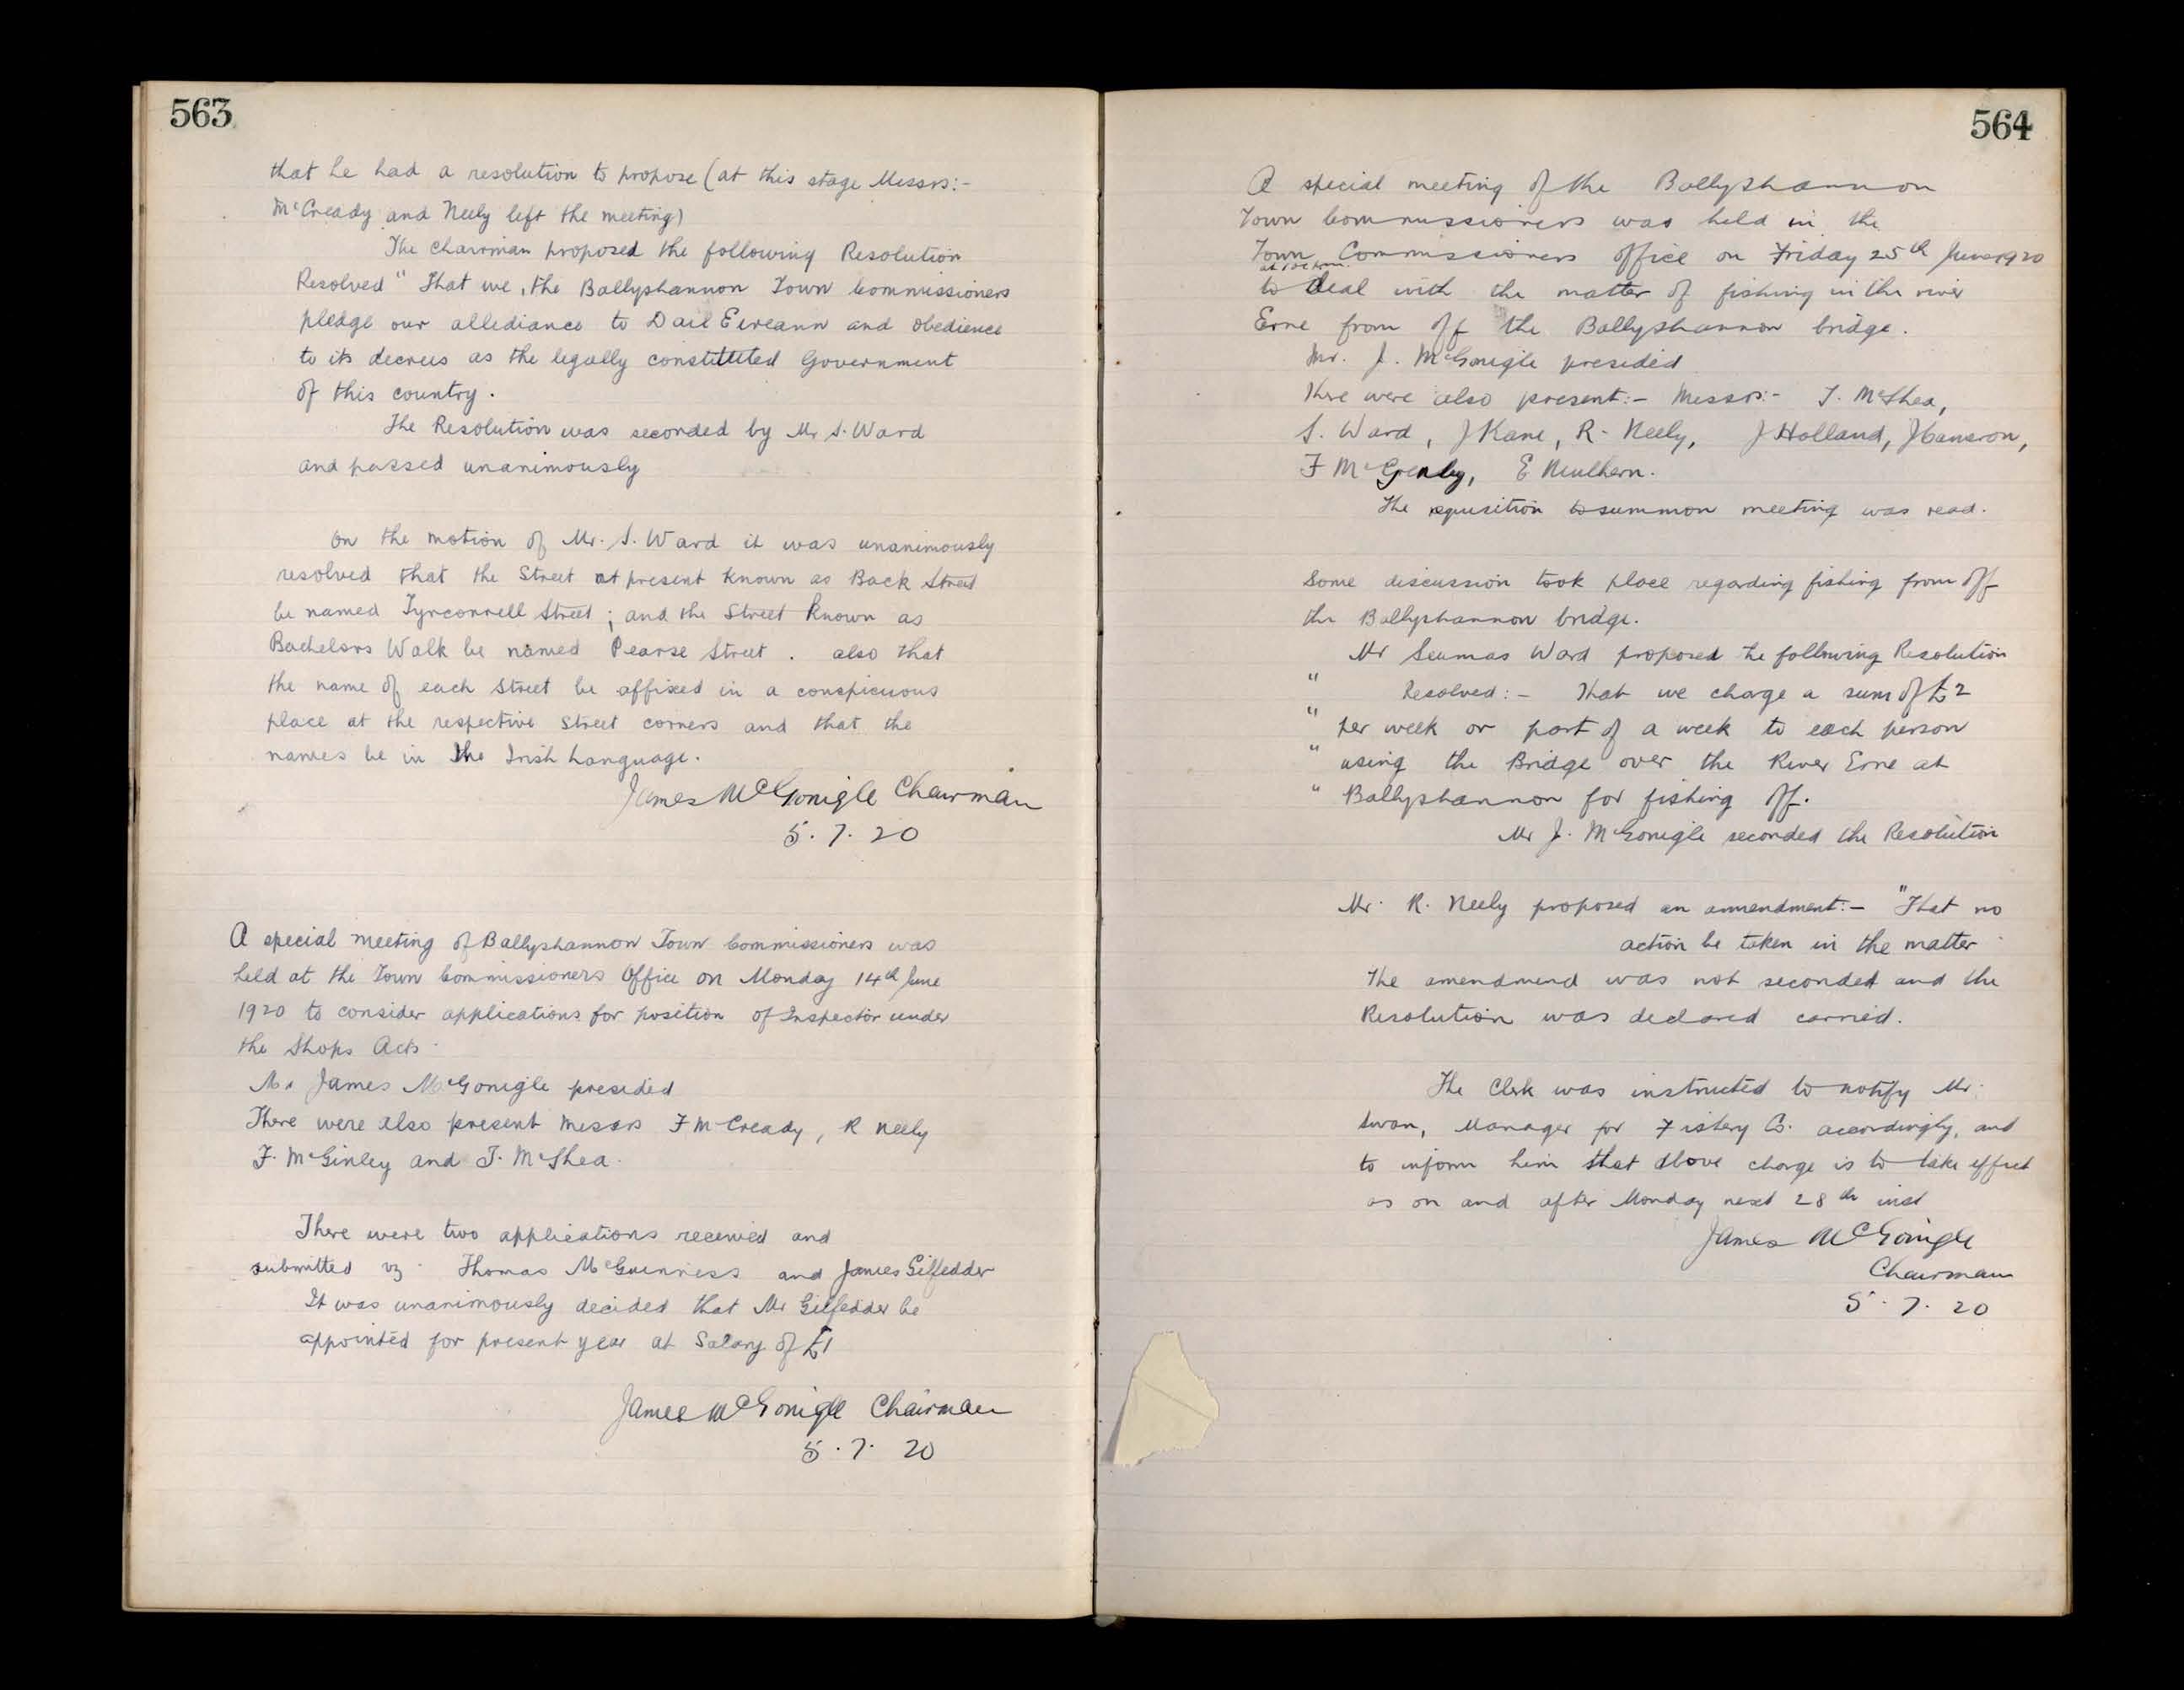 563
that he had a resolution to propose (at this stage Messrs:-
McCready and Neely left the meeting)
The Chairman proposed the following Resolution
Resolved " That we, the Ballyshannon Town Commissioners
pledge our allediance to Dail Eireann and obedience
to its decrees as the legally constituted Government
of this country.
The Resolution was seconded by Mr S. Ward
and passed unanimously
On the motion of Mr. S. Ward it was unanimously
resolved that the Street at present known as Back Street
be named Tyrconnell Street; and the Street known as
Bachelors Walk be named Pearse Street. also that
the name of each Street be affixed in a conspicuous
place at the respective Street corners and that the
names be in the Irish Language.
James McGonigle Chairman
5. 7. 20
A special meeting of Ballyshannon Town Commissioners was
held at the Town Commissioners Office on Monday 14th June
1920 to consider applications for position of Inspector under
the Shops Acts.
Mr James McGonigle presided
There were also present Messrs F McCready, R Neely
F. McGinley and T. McShea.
There were two applications received and
submitted viz. Thomas McGuinness and James Gilfedder
It was unanimously decided that Mr Gilfedder be
appointed for present year at Salary of £1
James McGonigle Chairman
5. 7. 20
564
A special meeting of the Ballyshannon
Town Commissioners was held in the
Town Commissioners office on Friday 25th June 1920
to deal with the matter of fishing in the river
Erne from off the Ballyshannon bridge.
Mr. J. McGonigle presided
There were also present:- Messrs:- T. McShea,
S. Ward, J Kane, R. Neely, J Holland, J Cameron,
F McGinley, E Mulhern.
The requisition to summon meeting was read.
Some discussion took place regarding fishing from off
the Ballyshannon bridge.
Mr Seumas Ward proposed the following Resolution
" Resolved:- That we charge a sum of £2
" per week or part of a week to each person
" using the Bridge over the River Erne at
" Ballyshannon for fishing off.
Mr J. McGonigle seconded the Resolution
Mr. R. Neely proposed an ammendment:- "That no
action be taken in the matter
The amendmend was not seconded and the
Resolution was declared carried.
The Clerk was instructed to notify Mr.
Swan, Manager for Fishery Co. accordingly, and
to inform him that above charge is to take effect
as on and after Monday next 28th inst
James McGonigle
Chairman
5. 7. 20